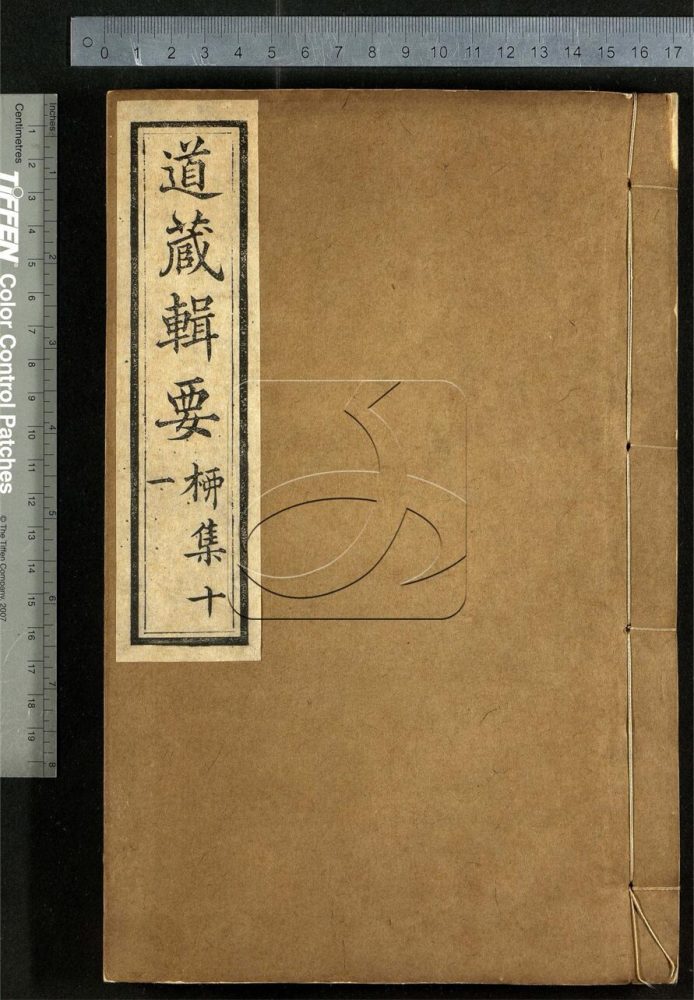 0 1 2 3 4 5 6 7 8 9 10 11 12 13 14 15 16 17
道蔵輯要
桺集十
一
Inches 1 2 3 4 5 6 7 8
Centimetres 1 2 3 4 5 6 7 8 9 10 11 12 13 14 15 16 17 18 19
TIFFEN Color Control Patches © The Tiffen Company, 2007